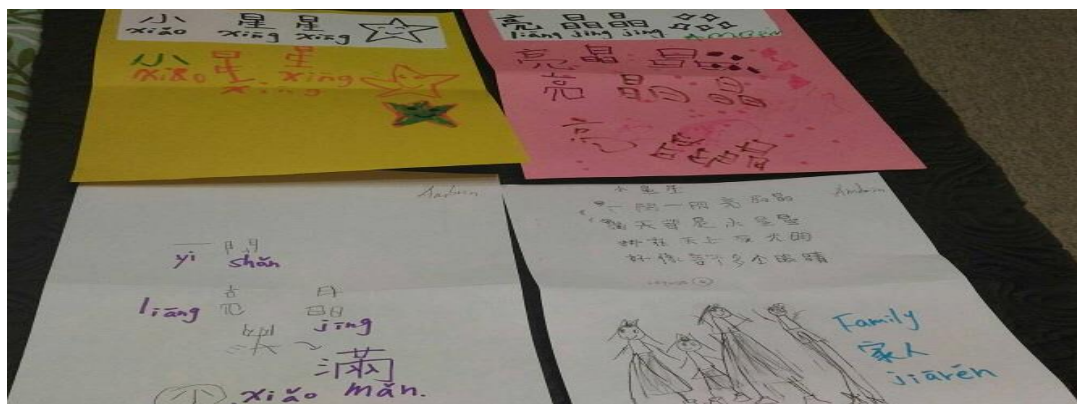 小 星 星
xiǎo xīng xīng
小 星 星
xiǎo xīng xīng
亮 晶 晶
liàng jīng jīng
亮 晶 晶
亮 晶 晶
亮 晶晶
Andrew
一 閃
yì shǎn
liàng 亮 晶
jīng
滿
小 xiǎo mǎn.
小星星
一閃一閃亮晶晶
滿天都是小星星
掛在天上放光明
好像許多小眼睛
Family
家人
jiārén